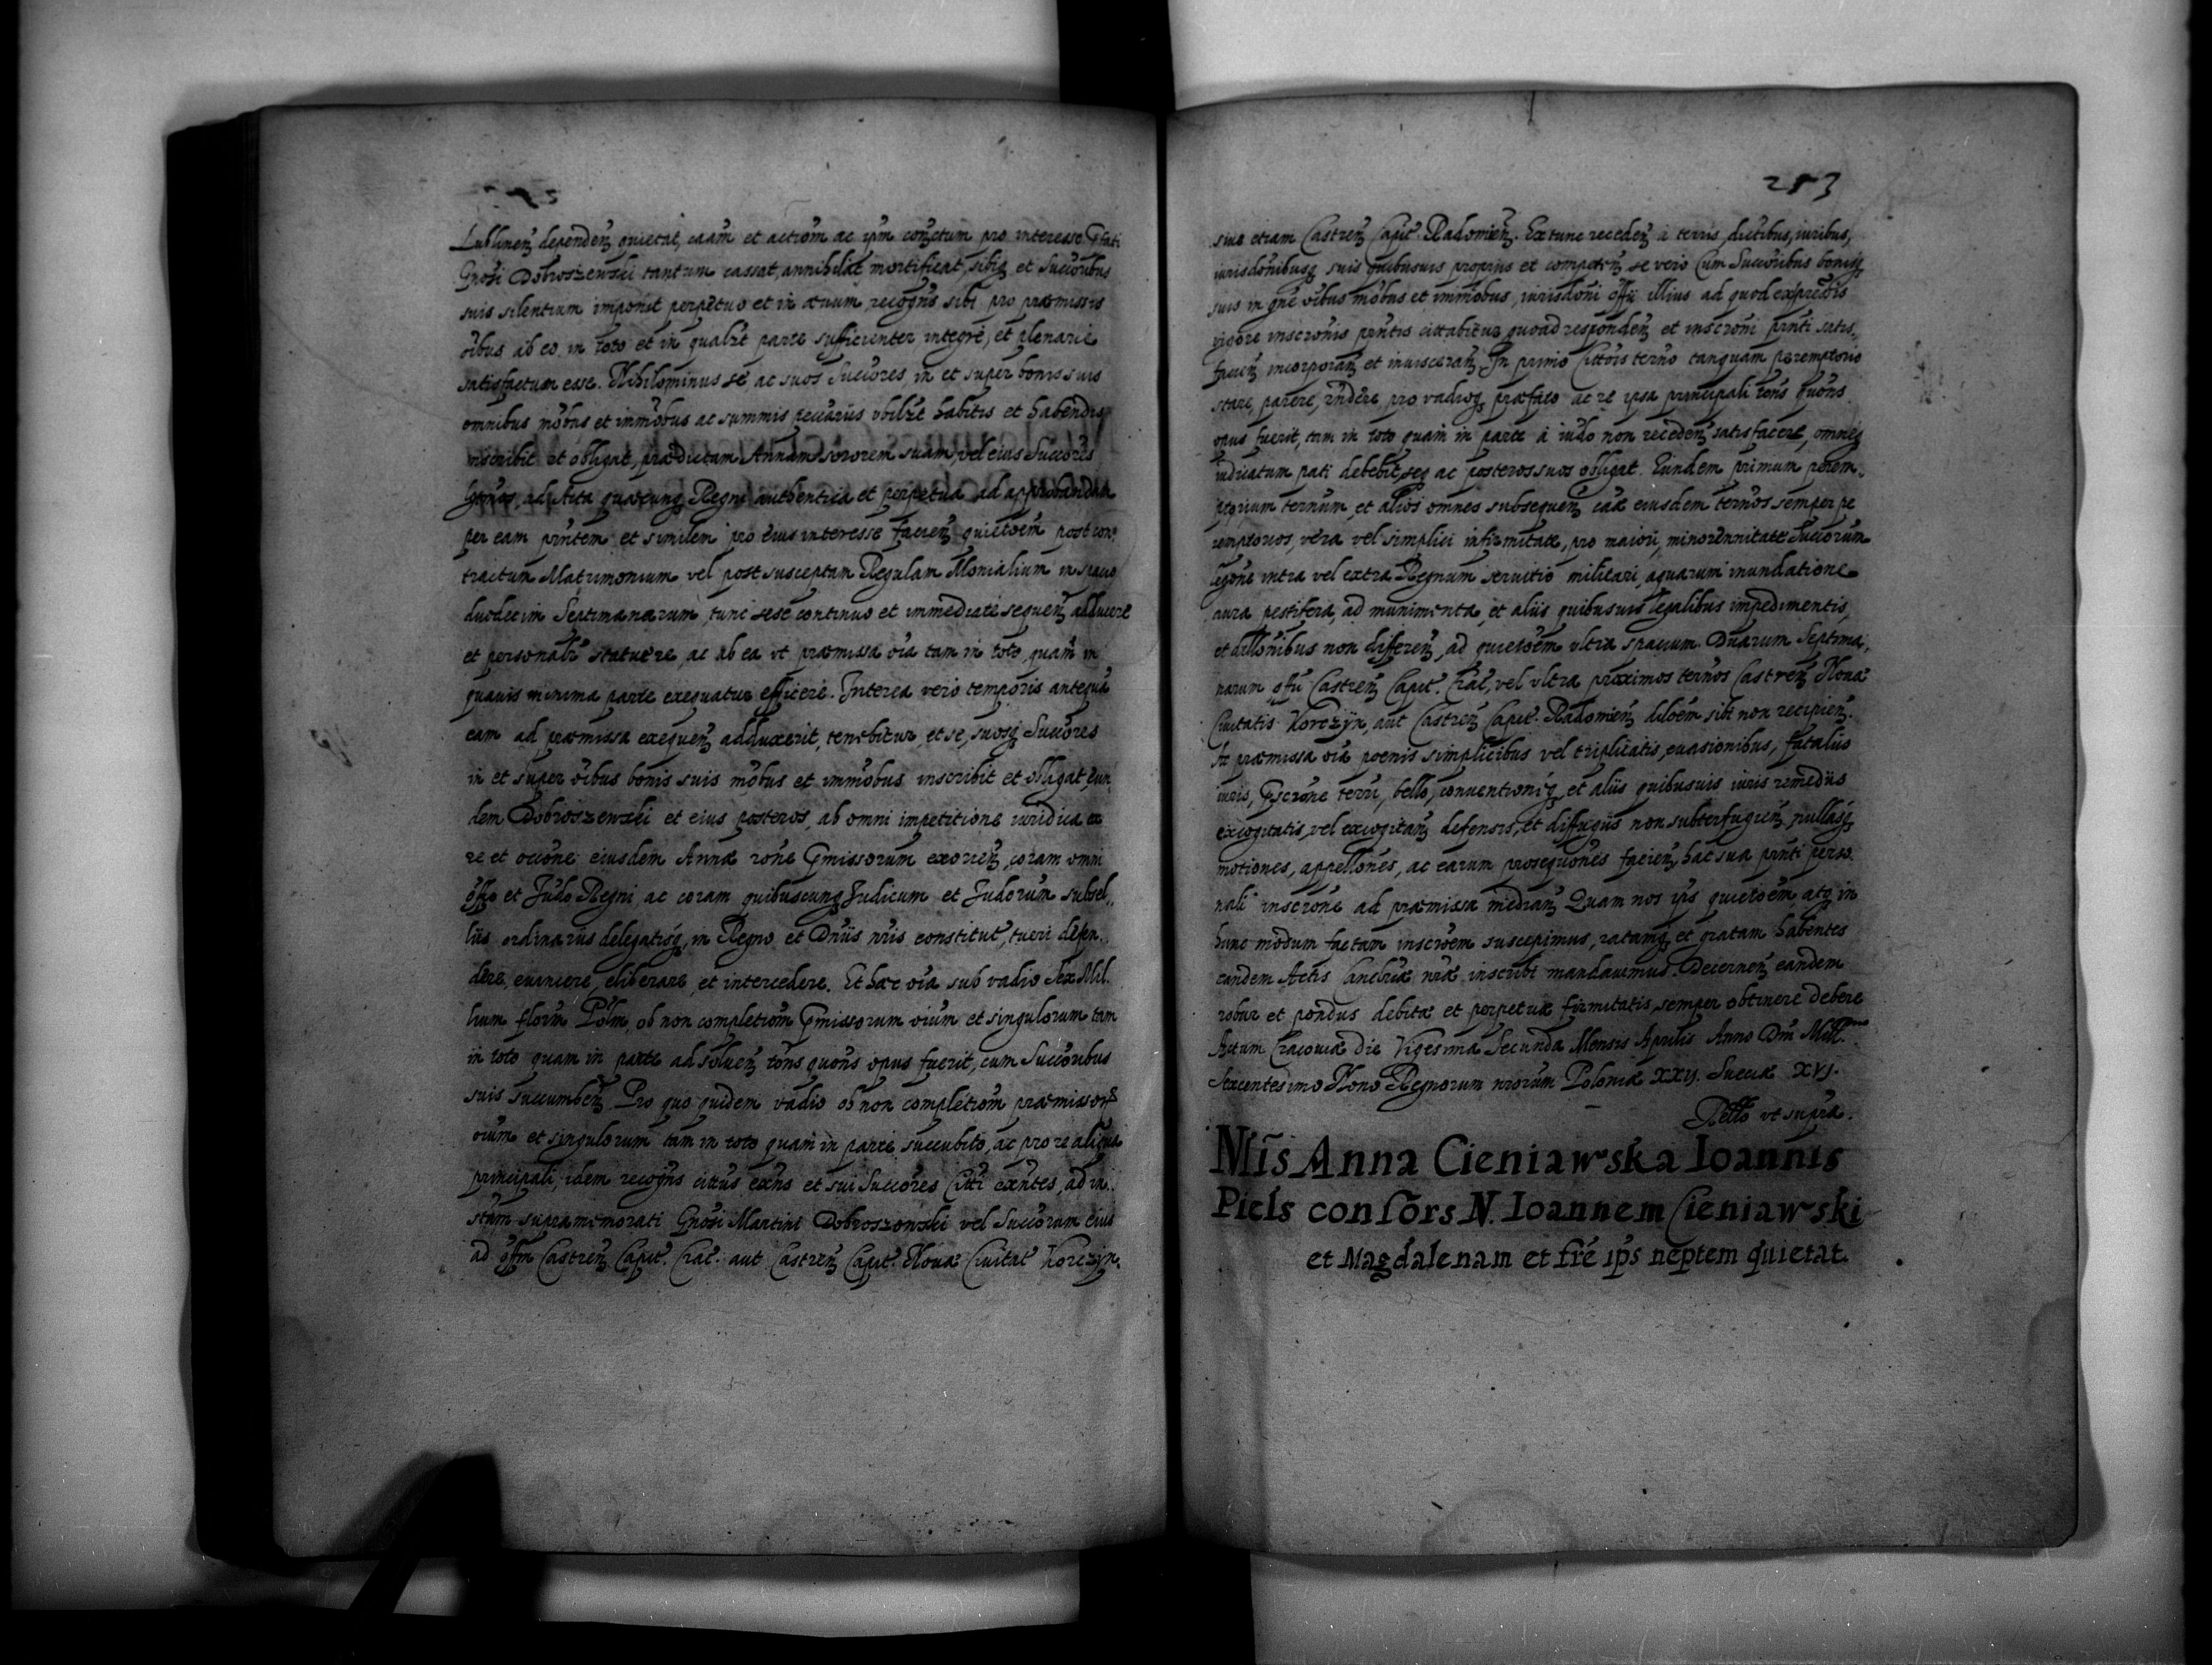 Lublineñ dependeñ quietat, caam et actiom ac ipm conctum pro interesse Pfati
Gnosi Dobroszewski tantum cassat, annihilat mortificat, sibiq et Succoribus
suis silentium imponit perpetuo et in ævum, recogns sibi pro præmissis
oibus ab eo in toto et in qualzt parte sufficienter integrè, et plenariè
satisfactum esse. Nihilominus se ac suos Succores, in et super bonis suis
omnibus mobus et immobus ac summis pecuariis vbilzt habitis et habendis
inscribit et obligat, prædictam Annam sororem suam, vel eius Succores
ad Acta quæcunq Regni authentica et perpetua ad approbandam
per eam pñtem et similem pro eius interesse facieñ quietoem post con,
tractum Matrimonium vel post susceptam Regulam Monialium in spacio
duodecim Septimanarum, tunc sese continuo et immediatè sequeñ adducere
et personalr statuere, ac ab ea vt præmissa oia tam in toto, quam in
quavis minima parte exequatur efficere. Interea vero temporis antequa
eam ad præmissa exequeñ adduxerit, tenebitur, et se, suosq Succores
in et super oibus bonis suis mobus et immobus inscribit et obligat, eun,
dem Dobroszewski et eius posteros, ab omni impetitione iuridica ex
re et occone eiusdem Annæ rone Pmissorum exorieñ, coram omni
offo et Judo Regni ac coram quibuscunq Judicum et Judorum subsel,,
liis ordinariis delegatisq, in Regno et Dniis nris constitut, tueri defen,,
dere, evincere, eliberare, et intercedere. Et hæc oia sub vadio Sex Mil.
lium florm Polm, ob non completiom Pmissorum oium et singulorum tam
in toto quam in parte ad solueñ tons quons opus fuerit, cum Succoribus
suis succumbeñ. Pro quo quidem vadio ob non completiom præmissor
oium et singulorum tam in toto quam in parte succubito, ac pro re aliqua
principali, idem recogns cittus exns et sui Succores Citti exntes, ad in,
stam supramemorati Gnosi Martini Dobroszowski vel Succorum eius
ad offm Castreñ Capit. Crac. aut Castreñ Capit. Nouæ Ciuitat Korczyn.
253
siue etiam Castreñ Capit. Radomieñ. Ex tunc recedeñ à terris, districtibus, iuribus,
iurisdonibusq suis quibusuis proprijs et competeñ se vero Cum Succoribus bonisq
suis in gñe oibus mobus et immobus, iurisdoni offii illius ad quod ex præmis
vigore inscronis pñtis cittabitur quoad respondeñ et inscroni pñti satis,,
facieñ incorporañ et inuiscerañ. In primo Cittois terno tanquam peremptorio
stare, parere, rndere, pro vadioq præfato ac re ipsa principali tons quons
opus fuerit, tam in toto quam in parte à iudo non recedeñ satisfacere, omneq
iudicatum pati debebit, seq ac posteros suos obligat. Eundem primum perem,,
ptorium ternum, et alios omnes subsequeñ caæ eiusdem ternos semper pe
remptorios, vera vel simplici infirmitate, pro maiori, minorennitate Succorum
legone intra vel extra Regnum, seruitio militari, aquarum inundatione
aura pestifera, ad munimenta, et aliis quibusuis legalibus impedimentis,
et dillonibus non differeñ, ad quietoem vltra spacium Duarum Septima,
narum offii Castreñ Capit. Crac, vel vltra proximos ternos Castreñ Nouæ
Ciuitatis Korczyn, aut Castreñ Capit. Radomieñ diloem sibi non recipieñ.
In præmissa oia poenis simplicibus vel triplicatis, euasionibus, fataliis
iuris, Pscrone terri, bello, conuentioniq, et aliis quibusuis iuris remediis
excogitatis, vel excogitañ defensis, et diffugiis non subterfugieñ, nullasq
motiones, appellones, ac earum prosequiones facieñ, hac sua pñti perso,
nali inscrone ad præmissa mediañ. Quam nos ips quietoem, atq in
hunc modum factam inscroem suscepimus, ratamq et gratam habentes
eandem Actis Canclriæ nræ inscribi mandauimus. Decerneñ eandem
robur et pondus debitæ et perpetuæ firmitatis semper obtinere debere
Actum Cracouiæ die Vigesima Secunda Mensis Aprilis Anno Dni Mill.
Sexcentesimo Nono Regnorum nrorum Poloniæ XXIJ. Sueciæ XVJ.
Rello vt supra.
Nlis Anna Cieniawska Ioannis
Piels consors N. Ioannem Cieniawski
et Magdalenam et fre ips neptem quietat.